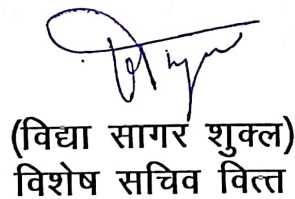 (विद्या सागर शुक्ल)
विशेष सचिव वित्त